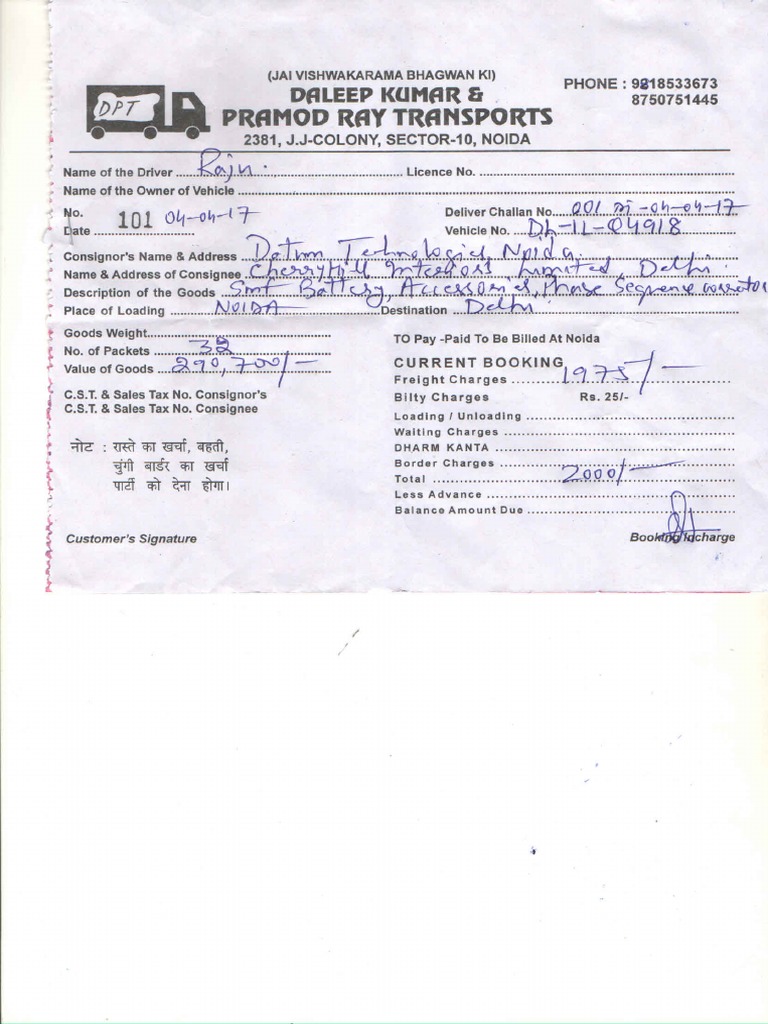 (JAI VISHWAKARAMA BHAGWAN KI)
DPT
DALEEP KUMAR &
PRAMOD RAY TRANSPORTS
2381, J.J-COLONY, SECTOR-10, NOIDA
PHONE : 9818533673
8750751445
Name of the Driver Raju. Licence No.
Name of the Owner of Vehicle
No. 101 Deliver Challan No. 001 04-04-17
Date 04-04-17 Vehicle No. DL-1L-Q4918
Consignor's Name & Address Datum Technologies, Noida.
Name & Address of Consignee Cherryhill Interiors Limited, Delhi.
Description of the Goods Smf Battery, Accessories, Phase Sequence
Place of Loading NOIDA Destination Delhi.
Goods Weight
No. of Packets 32
Value of Goods 290,700/-
C.S.T. & Sales Tax No. Consignor's
C.S.T. & Sales Tax No. Consignee
नोट : रास्ते का खर्चा, बहती,
चुंगी बार्डर का खर्चा
पार्टी को देना होगा।
Customer's Signature
TO Pay -Paid To Be Billed At Noida
CURRENT BOOKING
Freight Charges 1975/-
Bilty Charges Rs. 25/-
Loading / Unloading
Waiting Charges
DHARM KANTA
Border Charges
Total 2000/-
Less Advance
Balance Amount Due
Booking Incharge